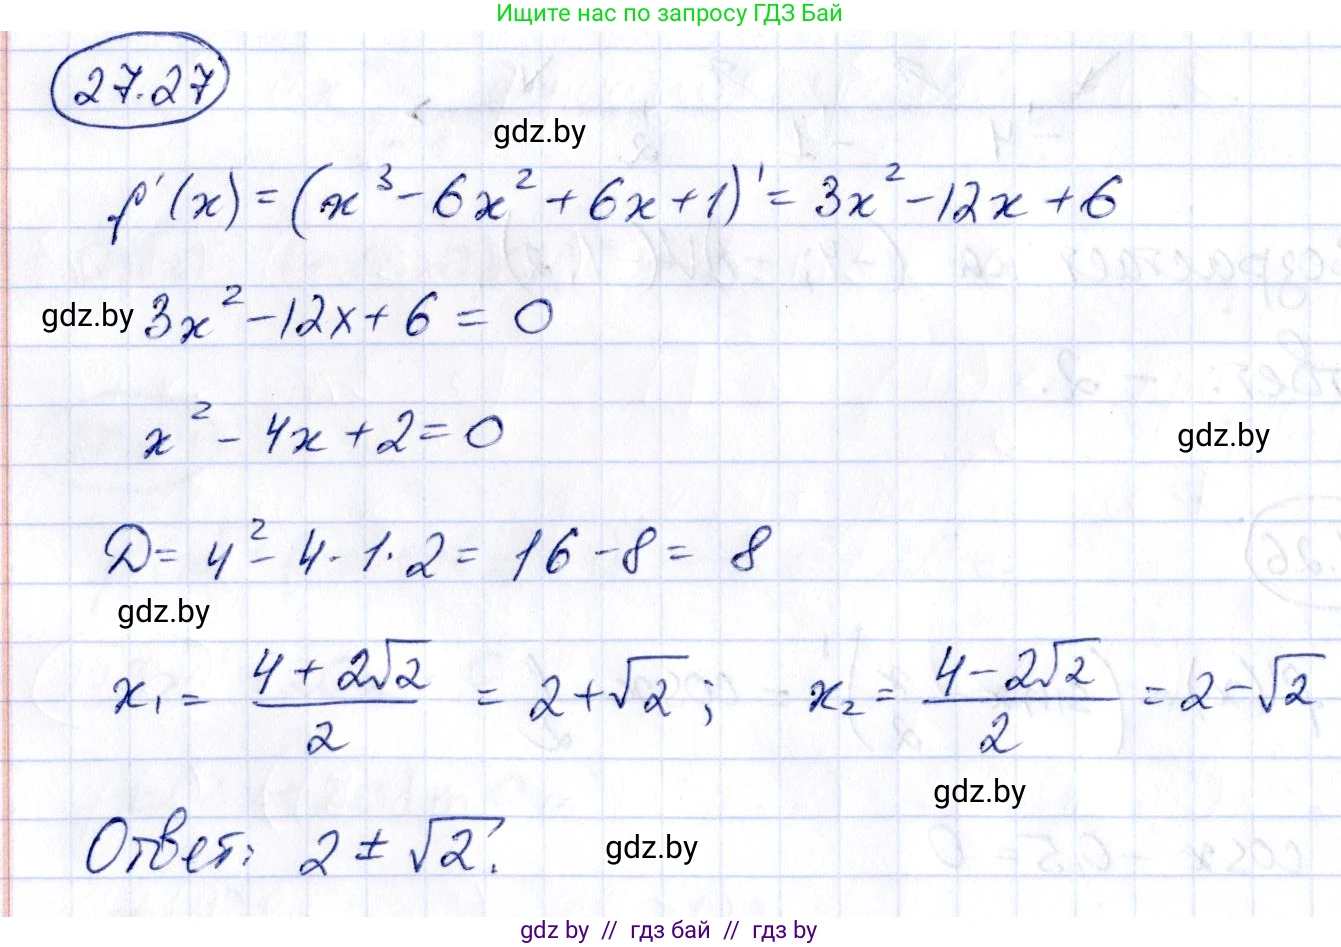 Ищите нас по запросу ГДЗ Бай
27.27
gdz.by
f'(x) = (x³ - 6x² + 6x + 1)' = 3x² - 12x + 6
gdz.by 3x² - 12x + 6 = 0
x² - 4x + 2 = 0
gdz.by
D = 4² - 4 · 1 · 2 = 16 - 8 = 8
gdz.by
x₁ = (4 + 2√2)/2 = 2 + √2; x₂ = (4 - 2√2)/2 = 2 - √2
gdz.by
Ответ: 2 ± √2. gdz.by
gdz by // гдз бай // гдз by